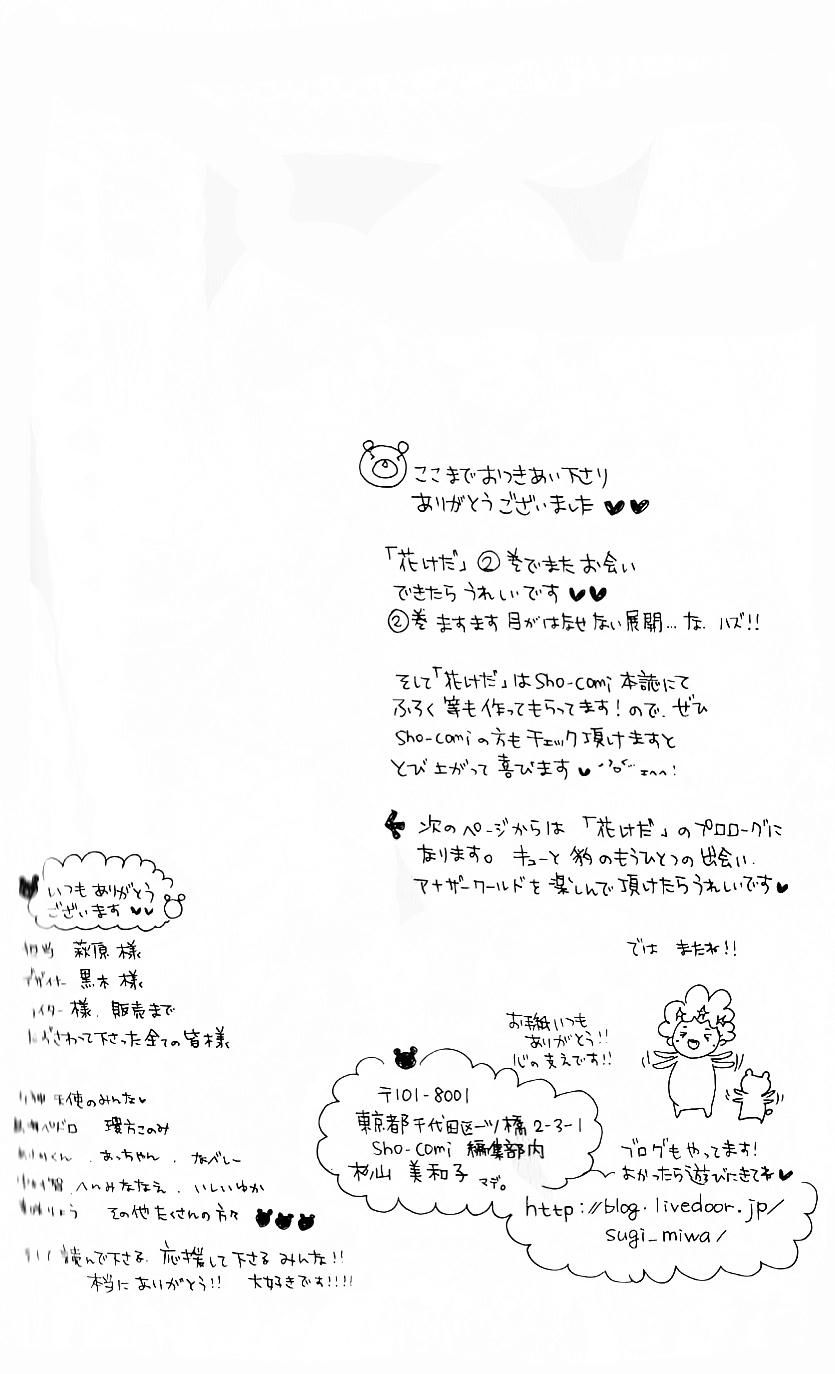 ここまでおつきあい下さり
ありがとうございました
「花けだ」②巻でまたお会い
できたらうれしいです
②巻ますます目がはなせない展開…な、ハズ!!
そして「花けだ」はSho-comi本誌にて
ふろく等も作ってもらってます!ので、ぜひ
Sho-comiの方もチェック頂けますと
とび上がって喜びます
次のページからは「花けだ」のプロローグに
なります。キューと豹のもうひとつの出会い、
アナザーワールドを楽しんで頂けたらうれしいです
では またね!!
お手紙いつも
ありがとう!!
心の支えです!!
〒101-8001
東京都千代田区一ツ橋2-3-1
Sho-comi 編集部内
杉山 美和子 マデ。
ブログもやってます!
よかったら遊びにきてネ
http://blog.livedoor.jp/
sugi_miwa/
いつもありがとう
ございます
担当 萩原様
デザイナー 黒木様
ライター様、販売まで
たずさわって下さった全ての皆様
天使のみんな
環方このみ
くん、あっちゃん、なべしー
へいみななえ、いしいゆか
りょう その他たくさんの方々
読んで下さる、応援して下さるみんな!!
本当にありがとう!! 大好きです!!!!